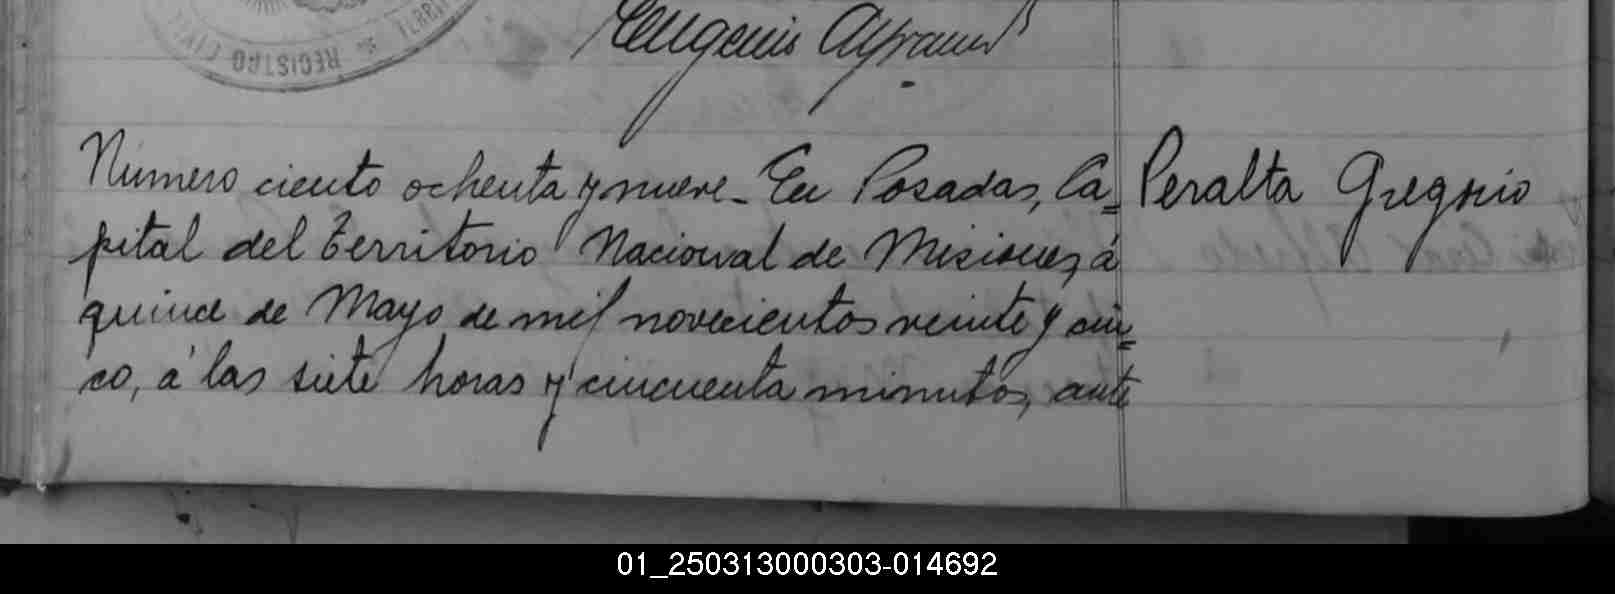 REGISTRO CIVIL
Eugenio
Número ciento ochenta y nueve_ En Posadas, Ca=
Peralta Gregorio
pital del Territorio Nacional de Misiones, á
quince de Mayo de mil novecientos veinte y cin=
co, á las siete horas y cincuenta minutos, ante
01_250313000303-014692